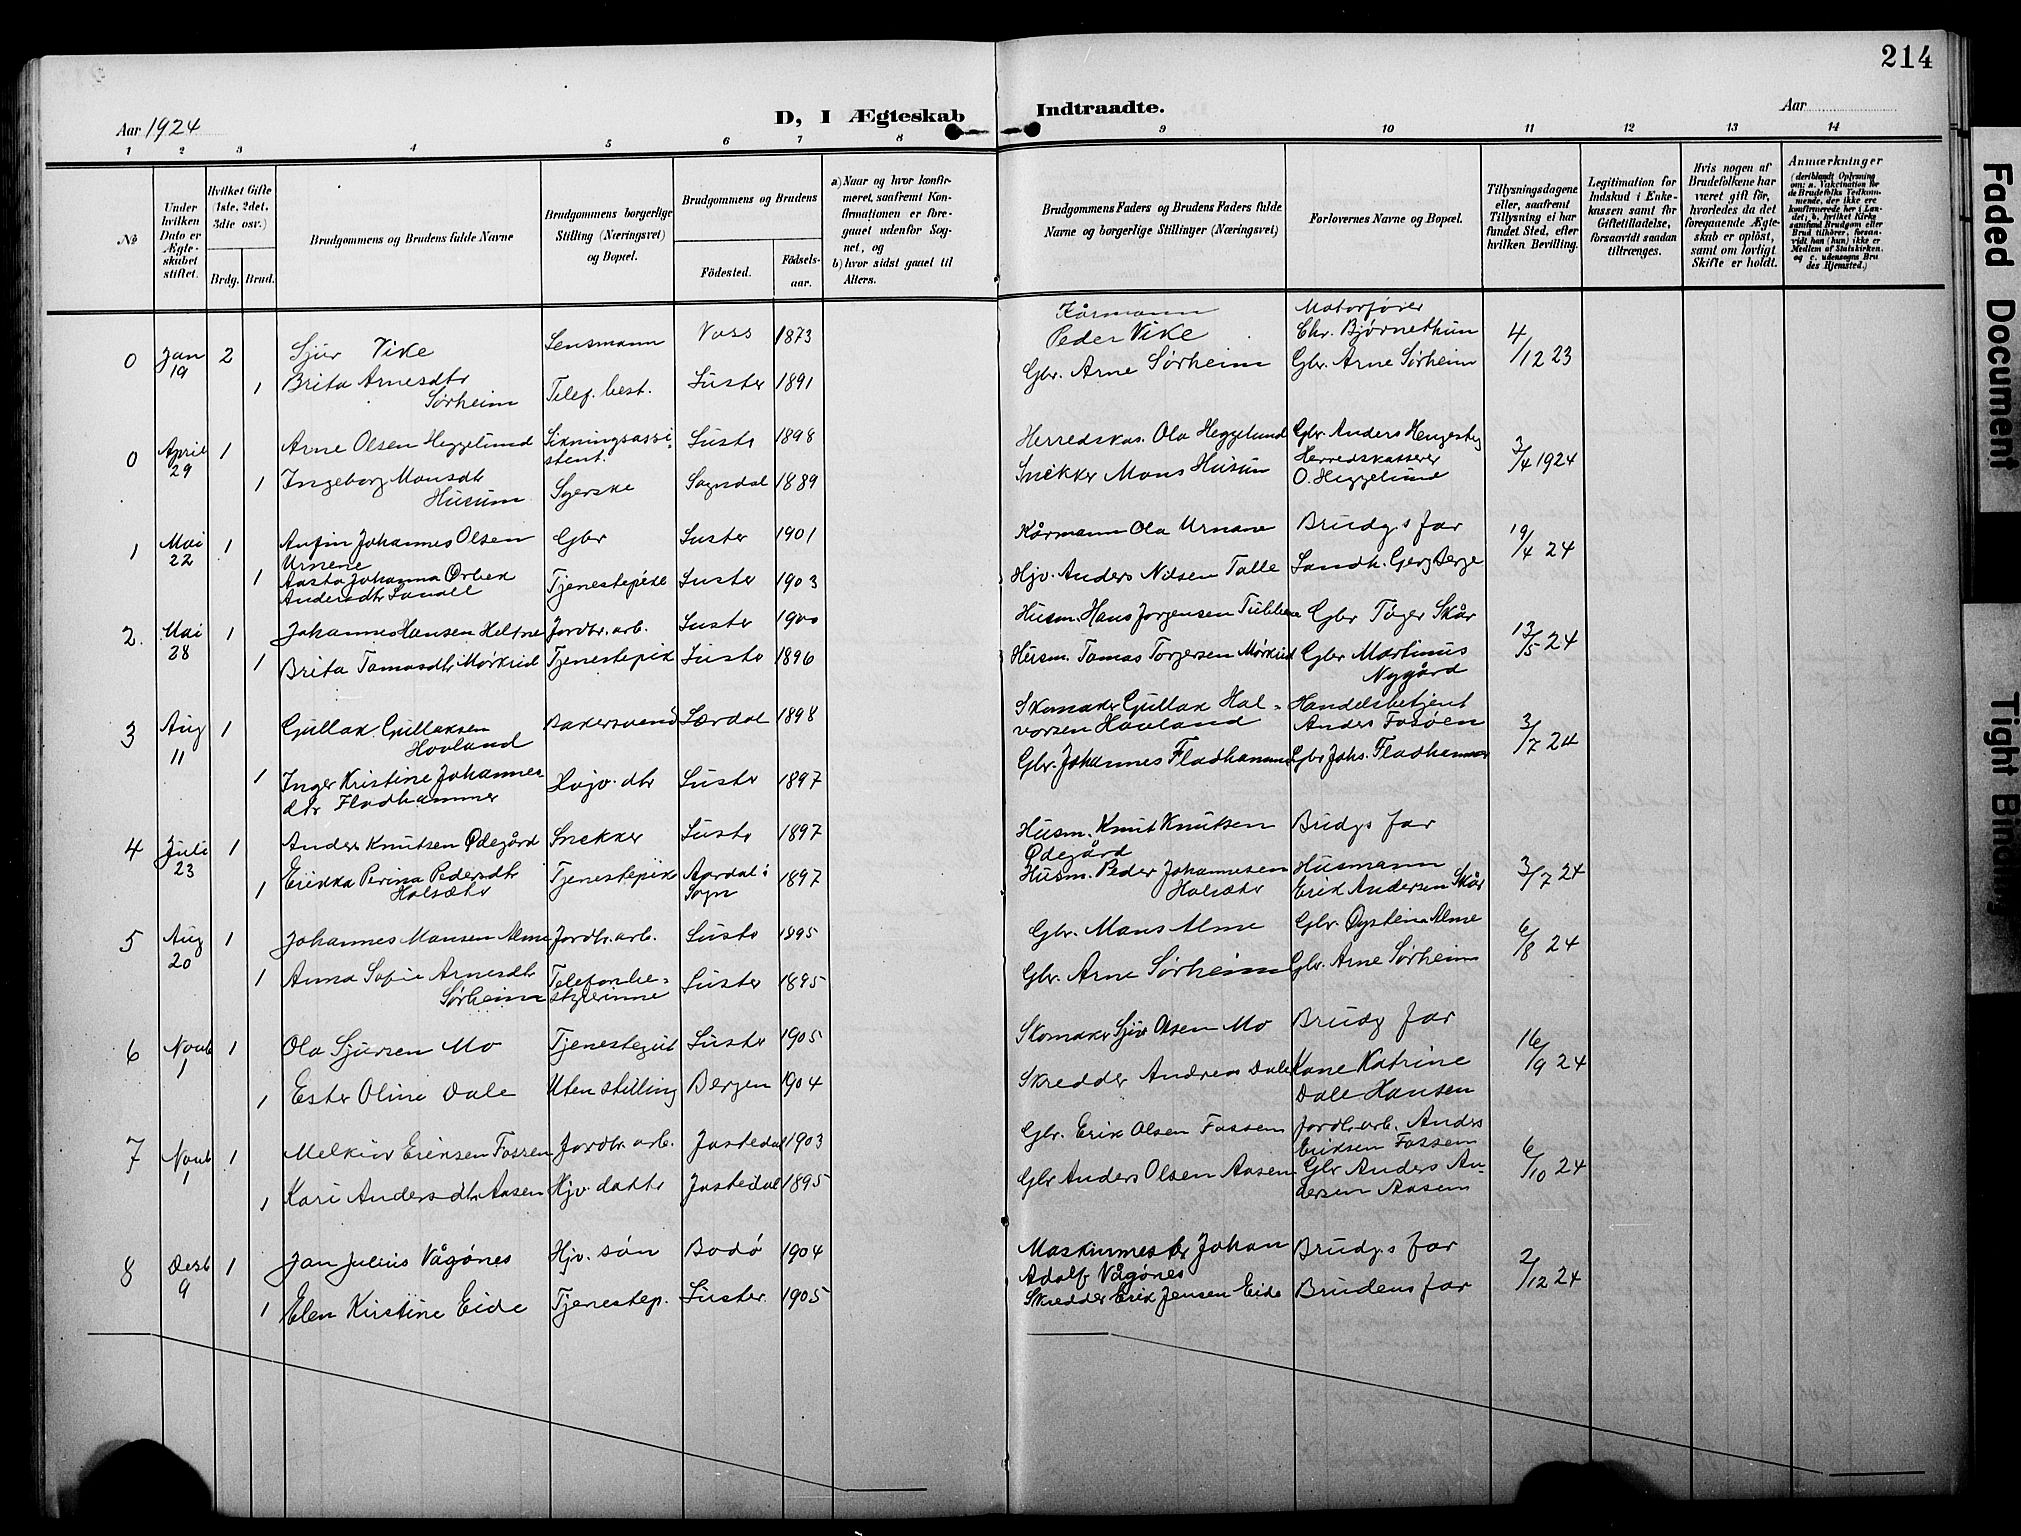 214
Aar 1924
D, I Ægteskab Indtraadte.
Aar
1 2 3 4 5 6 7 8 9 10 11 12 13 14
№
Under hvilken Dato er Ægteskabet stiftet.
Hvilket Gifte (1ste, 2det, 3die osv.)
Brdg. Brud.
Brudgommens og Brudens fulde Navne
Brudgommens borgerlige Stilling (Næringsvei) og Bopæl.
Brudgommens og Brudens
Födested.
Födsels-aar.
a) Naar og hvor konfirmeret, saafremt Konfirmationen er foregaaet udenfor Sognet, og
b) hvor sidst gaaet til Alters.
Brudgommens Faders og Brudens Faders fulde Navne og borgerlige Stillinger (Næringsvei)
Forlovernes Navne og Bopæl.
Tillysningsdagene eller, saafremt Tillysning ei har fundet Sted, efter hvilken Bevilling.
Legitimation for Indskud i Enkekassen samt for Giftetilladelse, forsaavidt saadan tiltrænges.
Hvis nogen af Brudefolkene har været gift för, hvorledes da det foregaaende Ægteskab er oplöst, samt om lovligt Skifte er holdt.
Anmærkninger
(deriblandt Oplysning om: a. Vakcination for de Brudefolks Vedkommende, der ikke ere konfirmerede her i Landet; b. hvilket Kirkesamfund Brudgom eller Brud tilhörer, forsaavidt han (hun) ikke er Medlem af Statskirken, og c. udensogns Brudes Hjemsted.)
0 Jan 19 2 Sjur Vike Lensmann Voss 1873 Kårmann Peder Vike Motorfører Chr. Bjørnethun 4/12 23
1 Brita Arnesdtr Sørheim Telef. best. Luster 1891 Gbr. Arne Sørheim Gbr. Arne Sørheim
0 April 29 1 Arne Olsen Heggelund Likningsassistent. Luster 1898 Herredskas. Ola Heggelund Gbr. Anders 3/4 1924
1 Ingeborg Monsdtr Husum Syerske Sogndal 1889 Snekker Mons Husum Herredskasserer O. Heggelund
1 Mai 22 1 Anfin Johannes Olsen Urnene Gbr Luster 1901 Kårmann Ola Urnane Brudg.s far 19/4 24
1 Aasta Johanna Ørbek Andersdtr Tjenestepike Luster 1903 Hjv. Anders Nilsen Talle Landh. Berge
2. Mai 28 1 Johannes Hansen Heltne Jordbr. arb. Luster 1900 Husm. Hans Jørgensen Gbr Tøger Skår 13/5 24
1 Brita Tomasdtr Mørkrid Tjenestepik Luster 1896 Husm. Tomas Torgersen Mørkrid Gbr Martinus Nygård
3 Aug 11 1 Gullak Gullaksen Hovland Bakersvend Lærdal 1898 Skomaker Gullak Halvorsen Hovland Handelsbetjent Anders Fosøen 3/7 24
1 Inger Kristine Johannesdtr Fladhammer Husjv. dtr Luster 1897 Gbr. Johannes Fladhammer Gbr Johs. Fladhammer
4 Juli 23 1 Anders Knutsen Ødegård Snekker Luster 1897 Husm. Knut Knutsen Ødegård Brudg.s far 3/7 24
1 Erikka Perina Pedersdtr Halsætr Tjenestepik Aardal i Sogn 1897 Husm. Peder Johannesen Halsætr Husmann Erik Andersen Skår
5 Aug 20 1 Johannes Monsen Alme Jordbr. arb. Luster 1895 Gbr. Mons Alme Gbr. Øystein Alme 6/8 24
1 Anna Sofie Arnesdtr Sørheim Telefonbestyrerinne Luster 1895 Gbr. Arne Sørheim Gbr. Arne Sørheim
6 Novb 1 1 Ola Sjursen Mo Tjenestegut Luster 1905 Skomaker Sjur Olsen Mo Brudg far 16/9 24
1 Ester Oline Dale Uten stilling Bergen 1904 Skredder Andreas Dale Kone Katrine Dale Hansen
7 Novb 1 1 Melkior Eriksen Fossen Jordbr. arb. Jostedal 1903 Gbr. Erik Olsen Fossen Jordbr. arb. Anders Eriksen Fossen 6/10 24
1 Kari Andersdtr Aasen Hjv. dattr Jostedal 1895 Gbr Anders Olsen Aasen Gbr Anders Andersen Aasen
8 Desb 9 1 Jan Julius Vågønes Hjv. søn Bodø 1904 Maskinmester Johan Adolf Vågønes Brudg.s far 2/12 24
1 Elen Kirstine Eide Tjenestep. Luster. 1905 Skredder Erik Jensen Eide Brudens far
Faded Document
Tight Binding